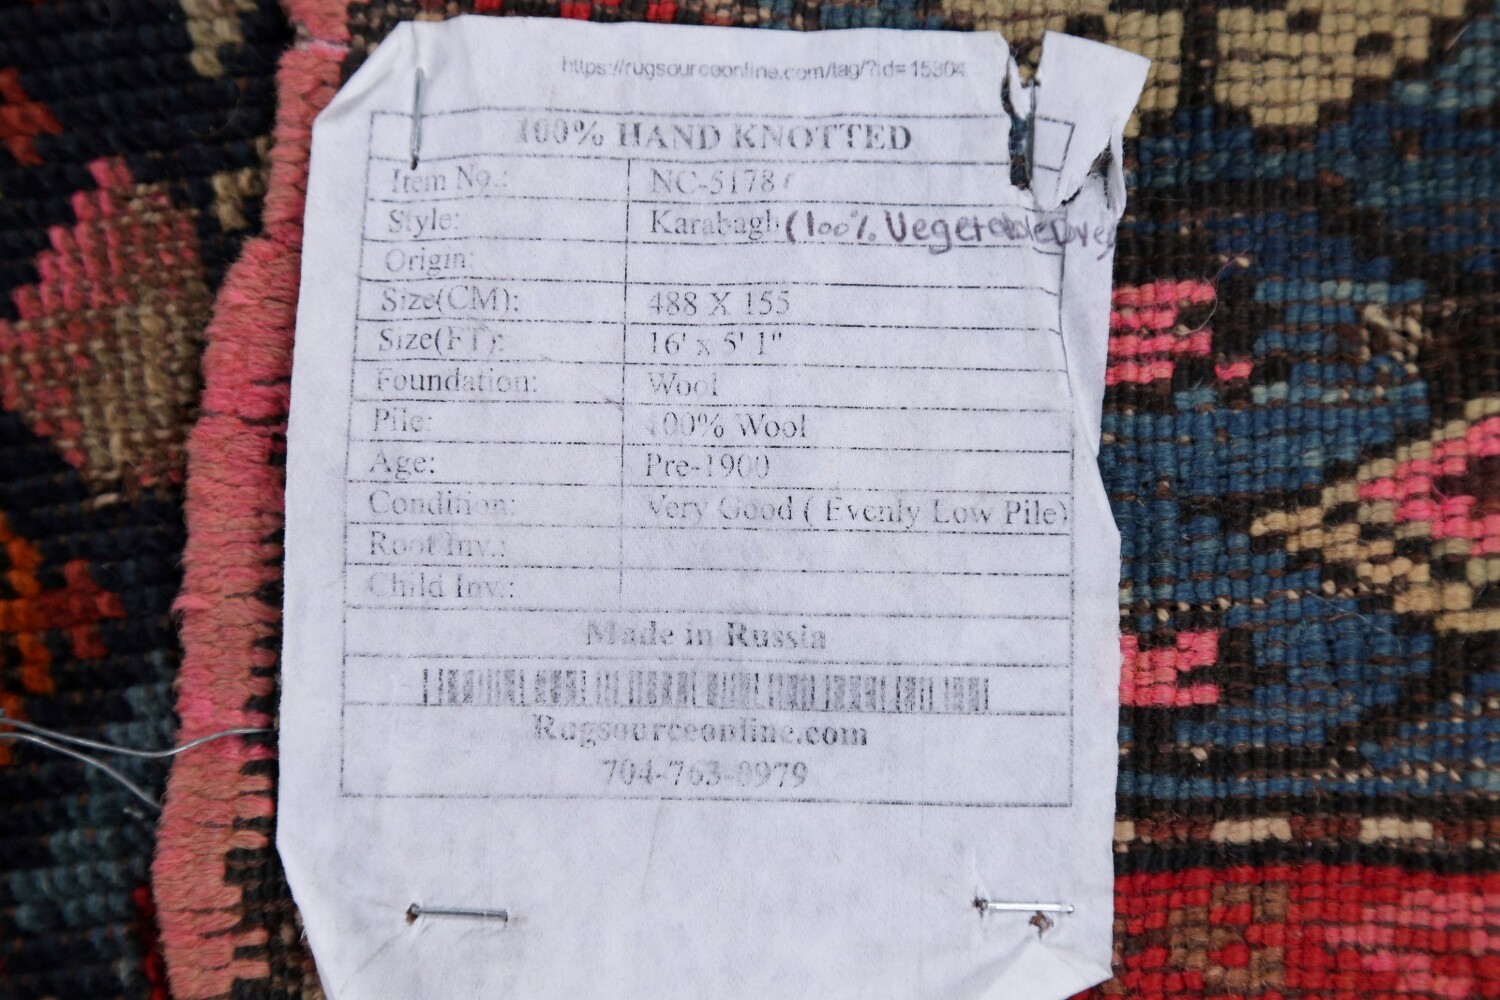 https://rugsourceonline.com/tag/?id=15304
100% HAND KNOTTED
Item No.: NC-5178
Style: Karabagh (100% Vegetable Dyes
Origin:
Size(CM): 488 X 155
Size(FT): 16' x 5' 1"
Foundation: Wool
Pile: 100% Wool
Age: Pre-1900
Condition: Very Good ( Evenly Low Pile)
Root Inv.:
Child Inv.:
Made in Russia
Rugsourceonline.com
704-763-0979